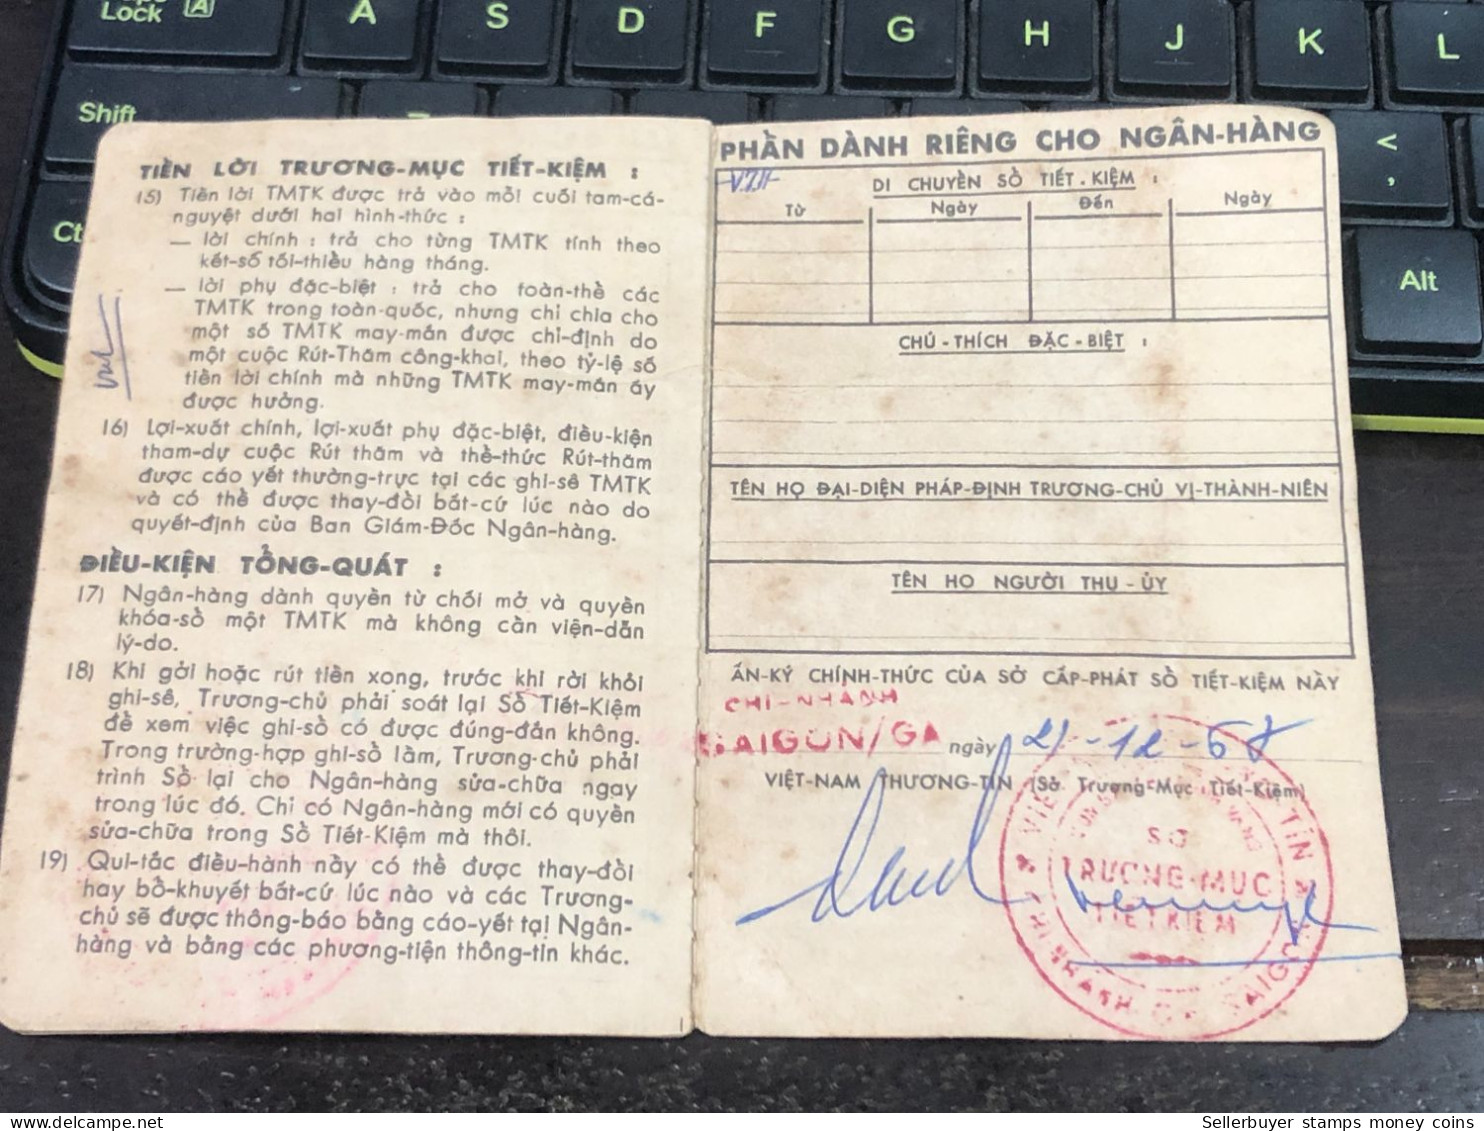 Lock A
A S D F G H J K L
Shift
<
,
Alt
TIỀN LỜI TRƯƠNG-MỤC TIẾT-KIỆM :
15) Tiền lời TMTK được trả vào mỗi cuối tam-cá-
nguyệt dưới hai hình-thức :
— lời chính : trả cho từng TMTK tính theo
kết-số tối-thiểu hàng tháng.
— lời phụ đặc-biệt : trả cho toàn-thể các
TMTK trong toàn-quốc, nhưng chỉ chia cho
một số TMTK may-mắn được chỉ-định do
một cuộc Rút-Thăm công-khai, theo tỷ-lệ số
tiền lời chính mà những TMTK may-mắn ấy
được hưởng.
16) Lợi-xuất chính, lợi-xuất phụ đặc-biệt, điều-kiện
tham-dự cuộc Rút thăm và thể-thức Rút-thăm
được cáo yết thường-trực tại các ghi-sê TMTK
và có thể được thay-đổi bất-cứ lúc nào do
quyết-định của Ban Giám-Đốc Ngân-hàng.
ĐIỀU-KIỆN TỔNG-QUÁT :
17) Ngân-hàng dành quyền từ chối mở và quyền
khóa-sổ một TMTK mà không cần viện-dẫn
lý-do.
18) Khi gởi hoặc rút tiền xong, trước khi rời khỏi
ghi-sê, Trương-chủ phải soát lại Sổ Tiết-Kiệm
để xem việc ghi-sổ có được đúng-đắn không.
Trong trường-hợp ghi-sổ lầm, Trương-chủ phải
trình Sổ lại cho Ngân-hàng sửa-chữa ngay
trong lúc đó. Chỉ có Ngân-hàng mới có quyền
sửa-chữa trong Sổ Tiết-Kiệm mà thôi.
19) Qui-tắc điều-hành này có thể được thay-đổi
hay bổ-khuyết bất-cứ lúc nào và các Trương-
chủ sẽ được thông-báo bằng cáo-yết tại Ngân-
hàng và bằng các phương-tiện thông-tin khác.
PHẦN DÀNH RIÊNG CHO NGÂN-HÀNG
DI CHUYỂN SỔ TIẾT.KIỆM :
Từ Ngày Đến Ngày
CHÚ-THÍCH ĐẶC-BIỆT :
TÊN HỌ ĐẠI-DIỆN PHÁP-ĐỊNH TRƯƠNG-CHỦ VỊ-THÀNH-NIÊN
TÊN HỌ NGƯỜI THỤ-ỦY
ẤN-KÝ CHÍNH-THỨC CỦA SỞ CẤP-PHÁT SỔ TIẾT-KIỆM NÀY
CHI-NHANH
SAIGON/GA ngày 21-12-68
VIỆT-NAM THƯƠNG-TÍN (Sở Trương-Mục Tiết-Kiệm)
SỞ
TRƯƠNG-MỤC
TIẾT KIỆM
Sellerbuyer stamps money coins